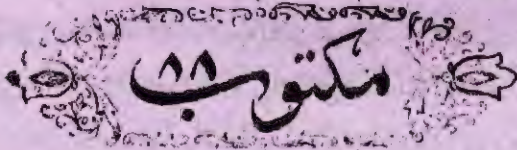 مکتوب ۸۸